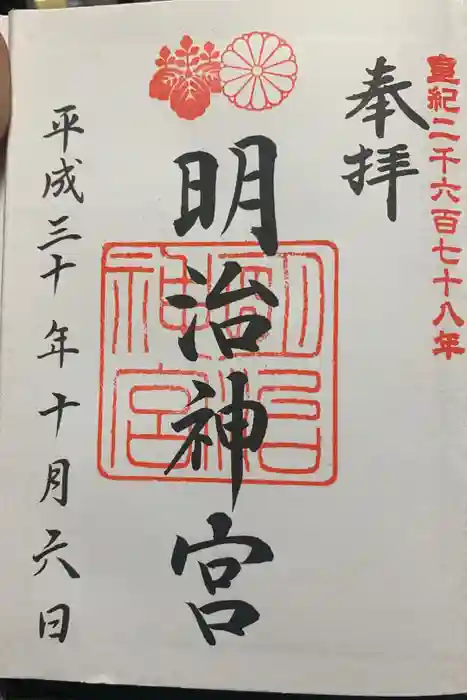 皇紀二千六百七十八年
奉拝
明治神宮
明治神宮
平成三十年十月六日